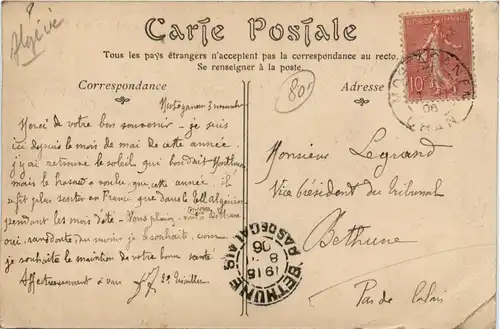 Algérie
Carte Postale
Tous les pays étrangers n'acceptent pas la correspondance au recto.
Se renseigner à la poste.
Correspondance
Adresse
80
REPUBLIQUE FRANÇAISE
10
ORAN
06
Mostaganem 3 novembre
Merci de votre bon souvenir - je suis
ici depuis le mois de mai de cette année,
j'y ai retrouvé le soleil qui boudait
mais le hasard a voulu que cette année, il
fut plus sentir en France que dans le Tell Algérien
pendant les mois d'été - Vous plaisez-vous à Béthune
oui, sans doute du moins je le souhaite, comme
je souhaite le maintien de votre bonne santé
Affectueusement à vous
Monsieur Legrand
Vice président du tribunal
Béthune
Pas de Calais
BETHUNE
PAS DE CALAIS
1915
8
06